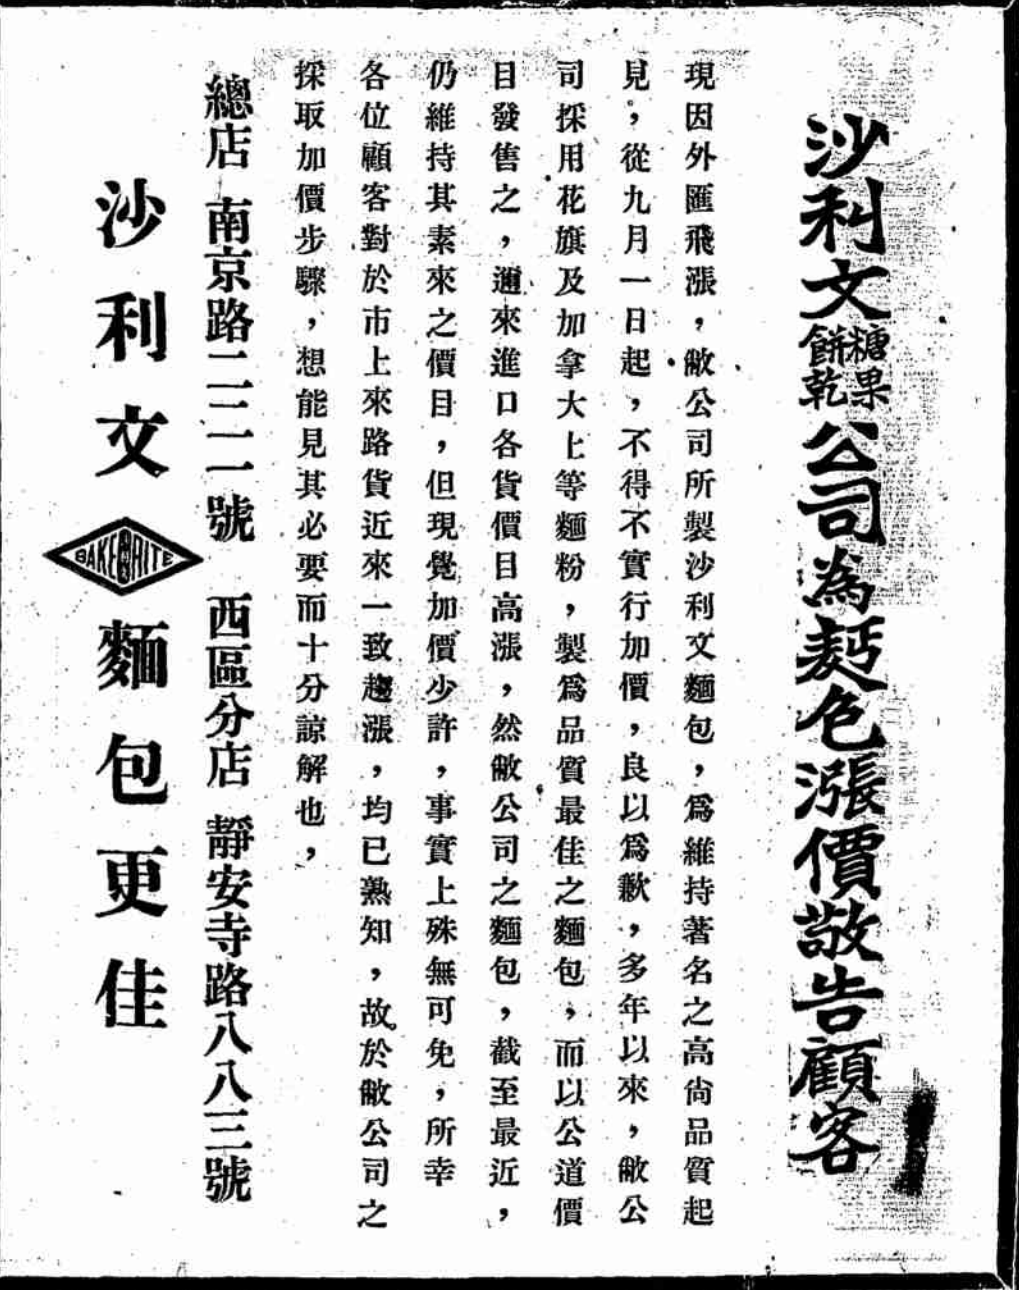 沙利文糖果餅乾公司為麪包漲價敬告顧客
現因外匯飛漲，敝公司所製沙利文麵包，爲維持著名之高尚品質起
見，從九月一日起，不得不實行加價，良以爲歉，多年以來，敝公
司採用花旗及加拿大上等麵粉，製爲品質最佳之麵包，而以公道價
目發售之，邇來進口各貨價目高漲，然敝公司之麵包，截至最近，
仍維持其素來之價目，但現覺加價少許，事實上殊無可免，所幸
各位顧客對於市上來路貨近來一致趨漲，均已熟知，故於敝公司之
採取加價步驟，想能見其必要而十分諒解也，
總店 南京路二二一號 西區分店 靜安寺路八八三號
沙利文 BAKERITE 麵包更佳